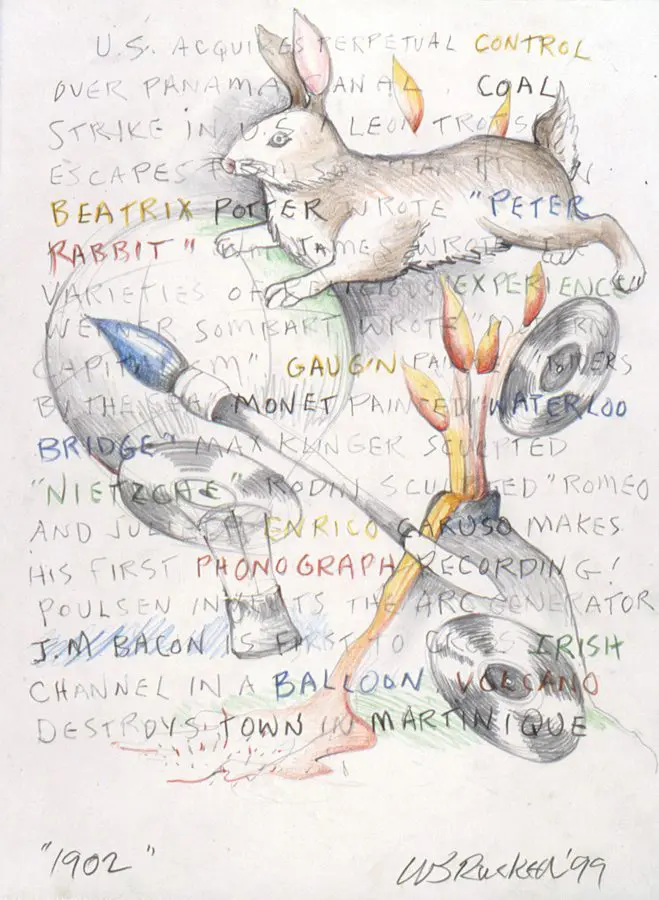 U.S. ACQUIRES PERPETUAL CONTROL
OVER PANAMA CANAL. COAL
STRIKE IN U.S. LEON TROTSKY
ESCAPES FROM IN
BEATRIX POTTER WROTE "PETER
RABBIT" JAMES WROTE
VARIETIES OF RELIGIOUS EXPERIENCE
WERNER SOMBART WROTE "MODERN
CAPITALISM" GAUG'N "RIDERS
BY THE SEA" MONET PAINTED "WATERLOO
BRIDGE" MAX KLINGER SCULPTED
"NIETZCHE" RODIN SCULPTED "ROMEO
AND JULIET" ENRICO CARUSO MAKES
HIS FIRST PHONOGRAPH RECORDING!
POULSEN INVENTS THE ARC GENERATOR
J.M BACON IS FIRST TO CROSS IRISH
CHANNEL IN A BALLOON VOLCANO
DESTROYS TOWN IN MARTINIQUE
"1902" '99